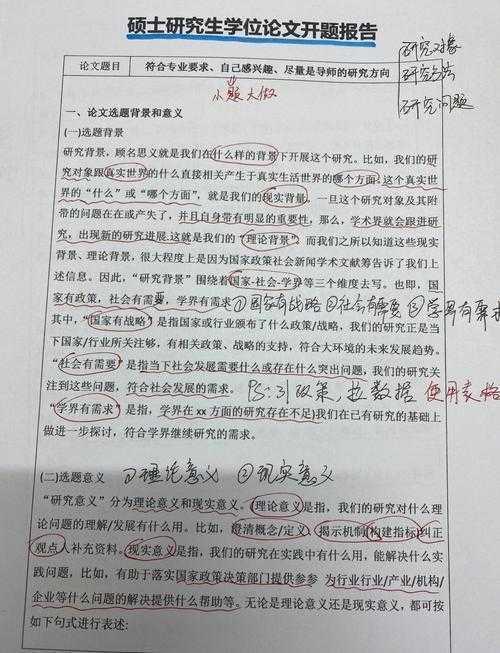 硕士研究生学位论文开题报告
研究对象
研究方法
研究问题
论文题目 符合专业要求、自己感兴趣、尽量是导师的研究方向
小题大做
一、论文选题背景和意义
(一)选题背景
研究背景，顾名思义就是我们在什么样的背景下开展这个研究。比如，我们的研
究对象跟真实世界的什么直接相关产生于真实生活世界的哪个方面。这个真实世
界的“什么”或“哪个方面”，就是我们的现实背景，一旦这个研究对象及其附
带的问题在在或产生了，并且自身带有明显的重要性，那么，学术界就会跟进研
究，出现新的研究进展.这就是我们的“理论背景”。而我们之所以知道这些现实
背景、理论背景，很大程度上是因为国家政策社会新闻学术文献筹告诉了我们上
述信息。因此，“研究背景”围绕着国家-社会-学界等三个维度去写。也即，国
家有政策，社会有需要，学界有需求 ①国家有战略 ②社会有需要 ③学界有需求
其中，“国家有战略”是指国家或行业颁布了什么政策/战略，我们的研究正是当
下国家/行业所关注够，有相关政策、战略的支持，符合大环境的未来发展趋势。
“社会有需要”是指当下社会发展需要什么或存在什么突出问题，我们的研究关
注到这些问题，符合社会发展的需求。 PS:引政策，拉数据 使用表格
“学界有需求”是指，学界在 xx 方面的研究存在不足)我们在己有研究的基础上
做进一步探讨，符合学界继续研究的需求。
(二)选题意义 ①理论意义 ②现实意义
“研究意义”分为理论意义和现实意义。(理论意义是指，我们的研究对什么理
论问题的理解/发展有什么用。比如，澄清概念/定义、揭示机制(构建指标)纠正
观点人补充资料。现实意义是指，我们的研究在实践中有什么用，能解决什么实
践问题，比如，有助于落实国家政策决策部门提供参参 为行业行业/产业/机构/
企业等什么问题的解决提供什么帮助等。无论是理论意义还是现实意义，都可按
如下句式进行表述: